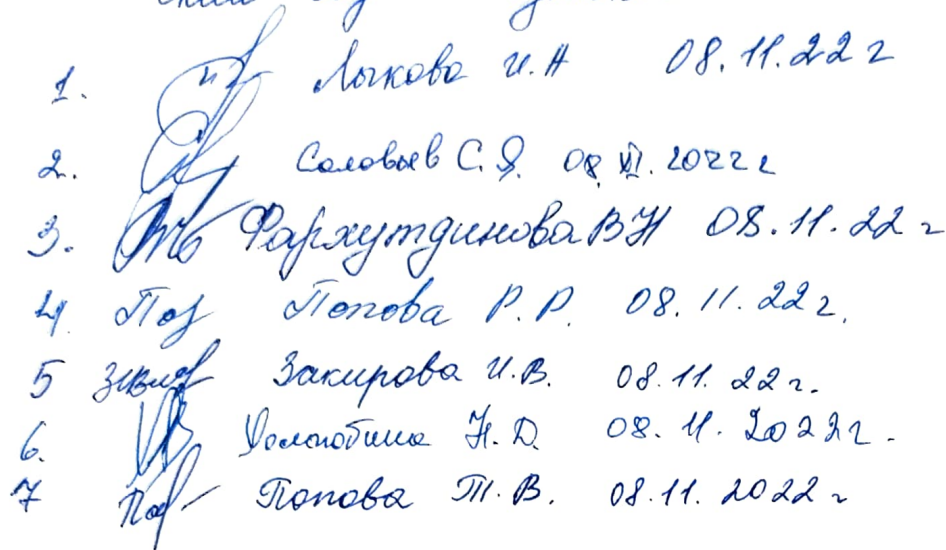 1. Лыкова И.Н 08.11.22 г
2. Соловьев С.Я. 08.XI.2022 г
3. Фархутдинова В Н 08.11.22 г
4. Поп Попова Р.Р. 08.11.22 г.
5 Закирова И.В. 08.11.22 г.
6. Н.Д. 08.11.2022 г.
7 Попова Т.В. 08.11.2022 г